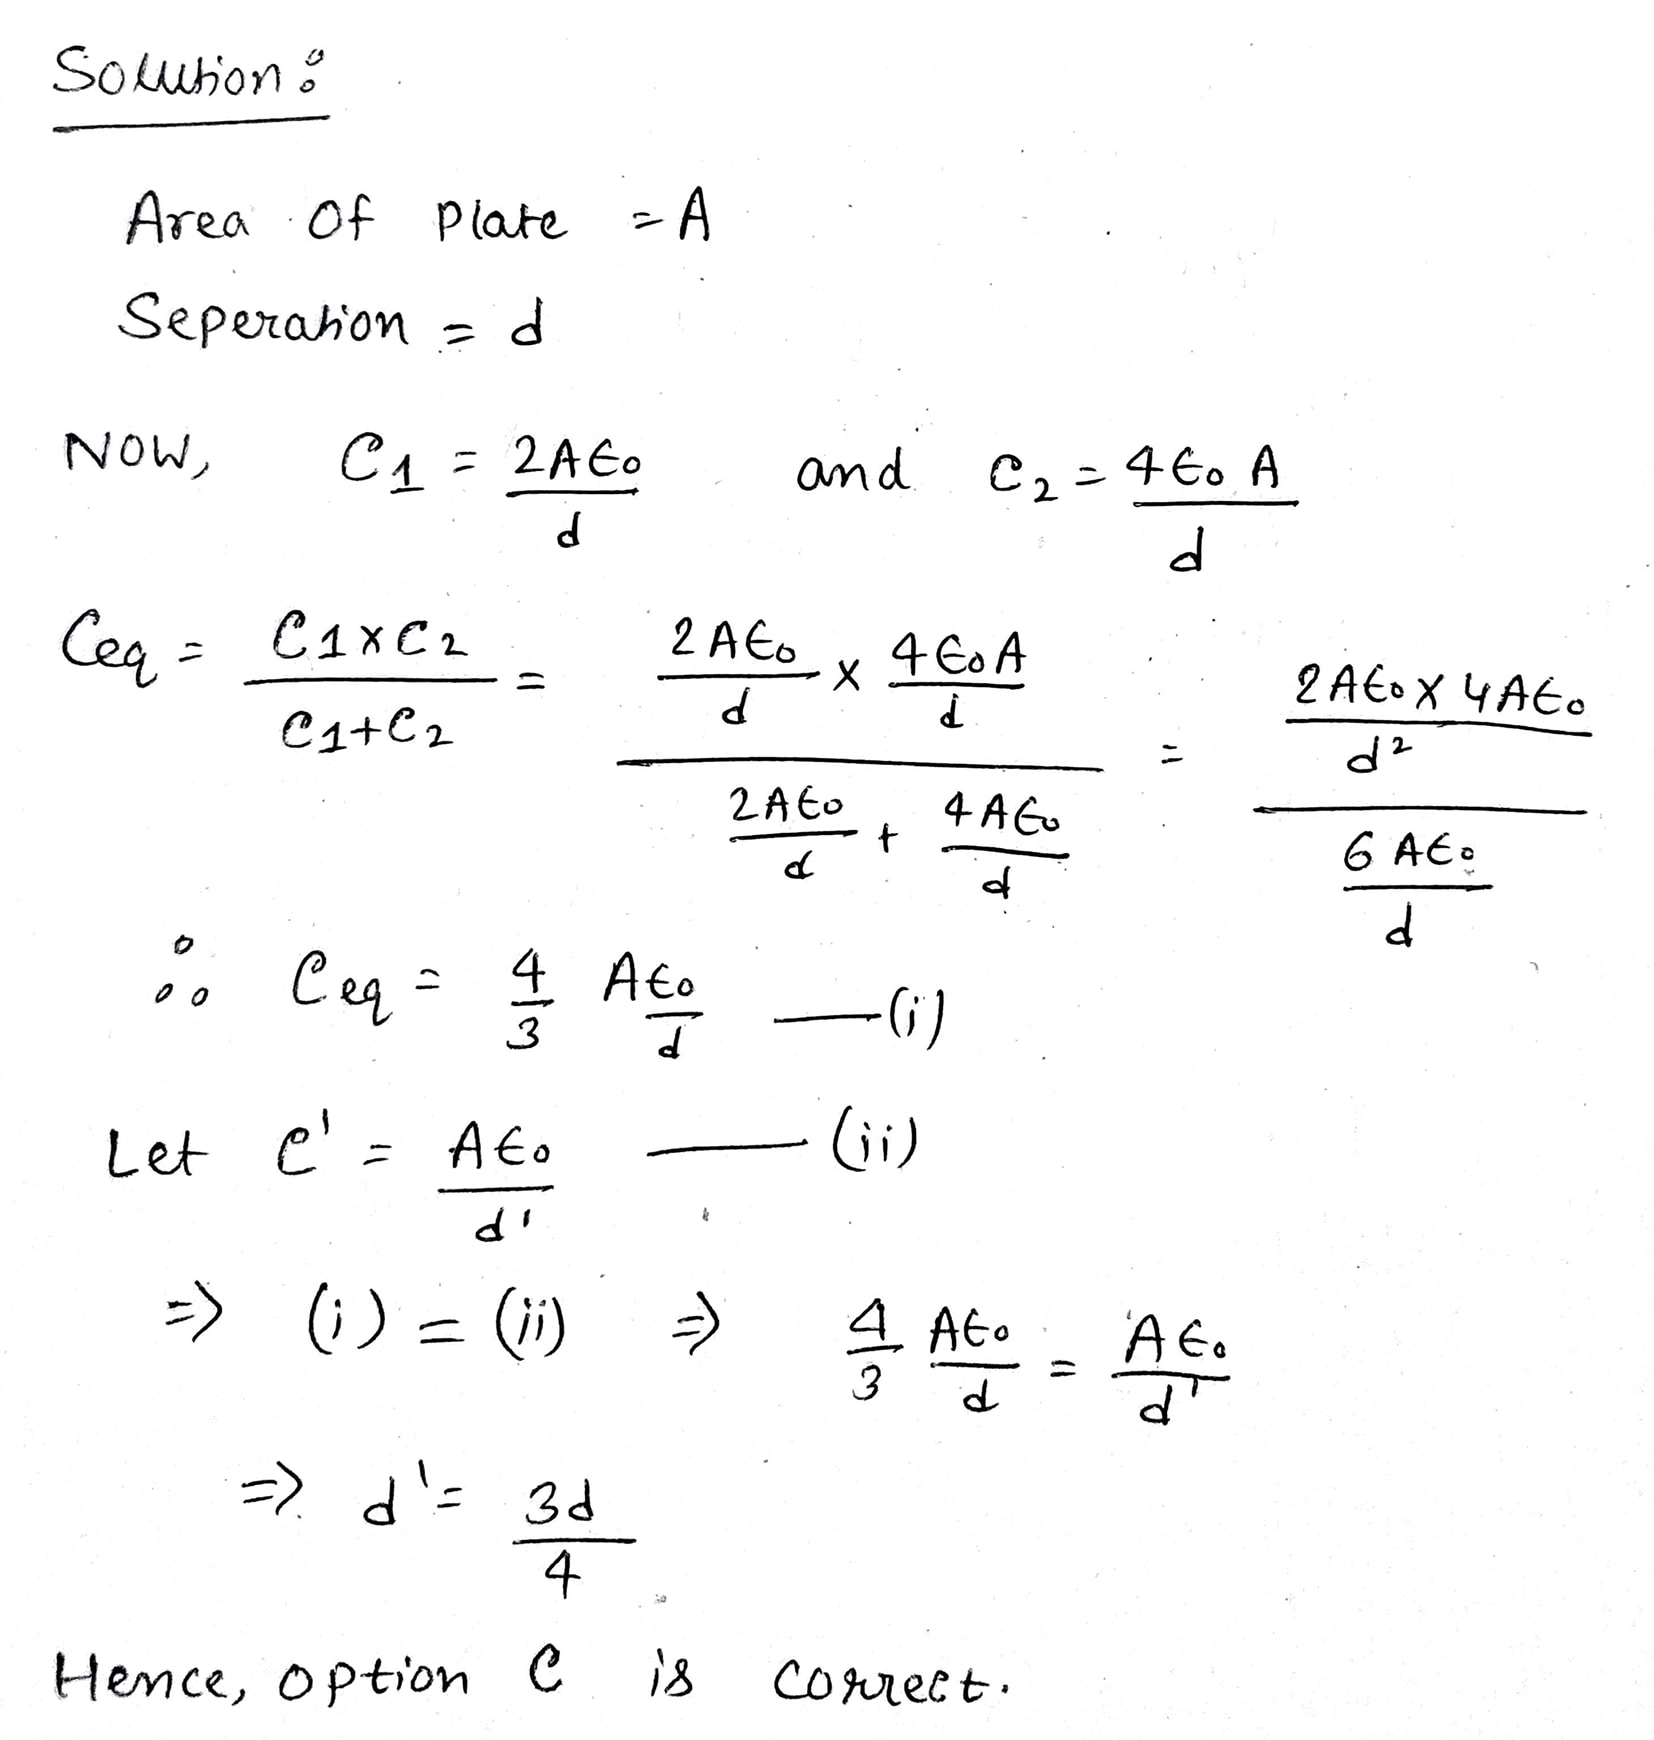 Solution:
Area Of Plate = A
Seperation = d
NOW, C1 = 2A∈₀/d and C₂ = 4∈₀A/d
Ceq = (C1×C2)/(C1+C2) = (2A∈₀/d × 4∈₀A/d)/(2A∈₀/d + 4A∈₀/d) = (2A∈₀×4A∈₀/d²)/(6A∈₀/d)
∴ Ceq = 4/3 A∈₀/d —(i)
Let C' = A∈₀/d' —(ii)
=> (i) = (ii) => 4/3 A∈₀/d = A∈₀/d'
=> d' = 3d/4
Hence, option C is correct.